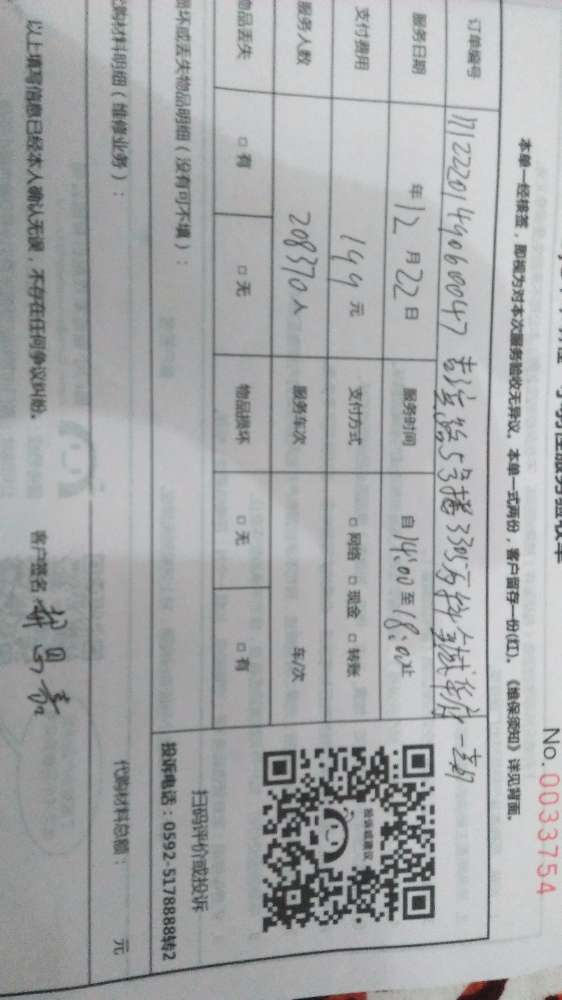 No. 0033754
服务验收单
本单一经接签，即视为对本次服务验收无异议。本单一式两份，客户留存一份(红)。《维保须知》详见背面。
订单编号 171222014906 0047
服务日期 年 12 月 22 日 服务时间 自 14:00 至 18:00 止
支付费用 144 元 支付方式 □ 网络 □ 现金 □ 转账
服务人数 208370 人 服务车次 车/次
物品丢失 □ 有 □ 无 物品损坏 □ 无 □ 有
损坏或丢失物品明细（没有可不填）：
扫码评价或投诉
投诉电话：0592-5178888转2
投诉或建议
代购材料明细（维修业务）： 代购材料总额： 元
以上填写信息已经本人确认无误，不存在任何争议纠纷。 客户签名：